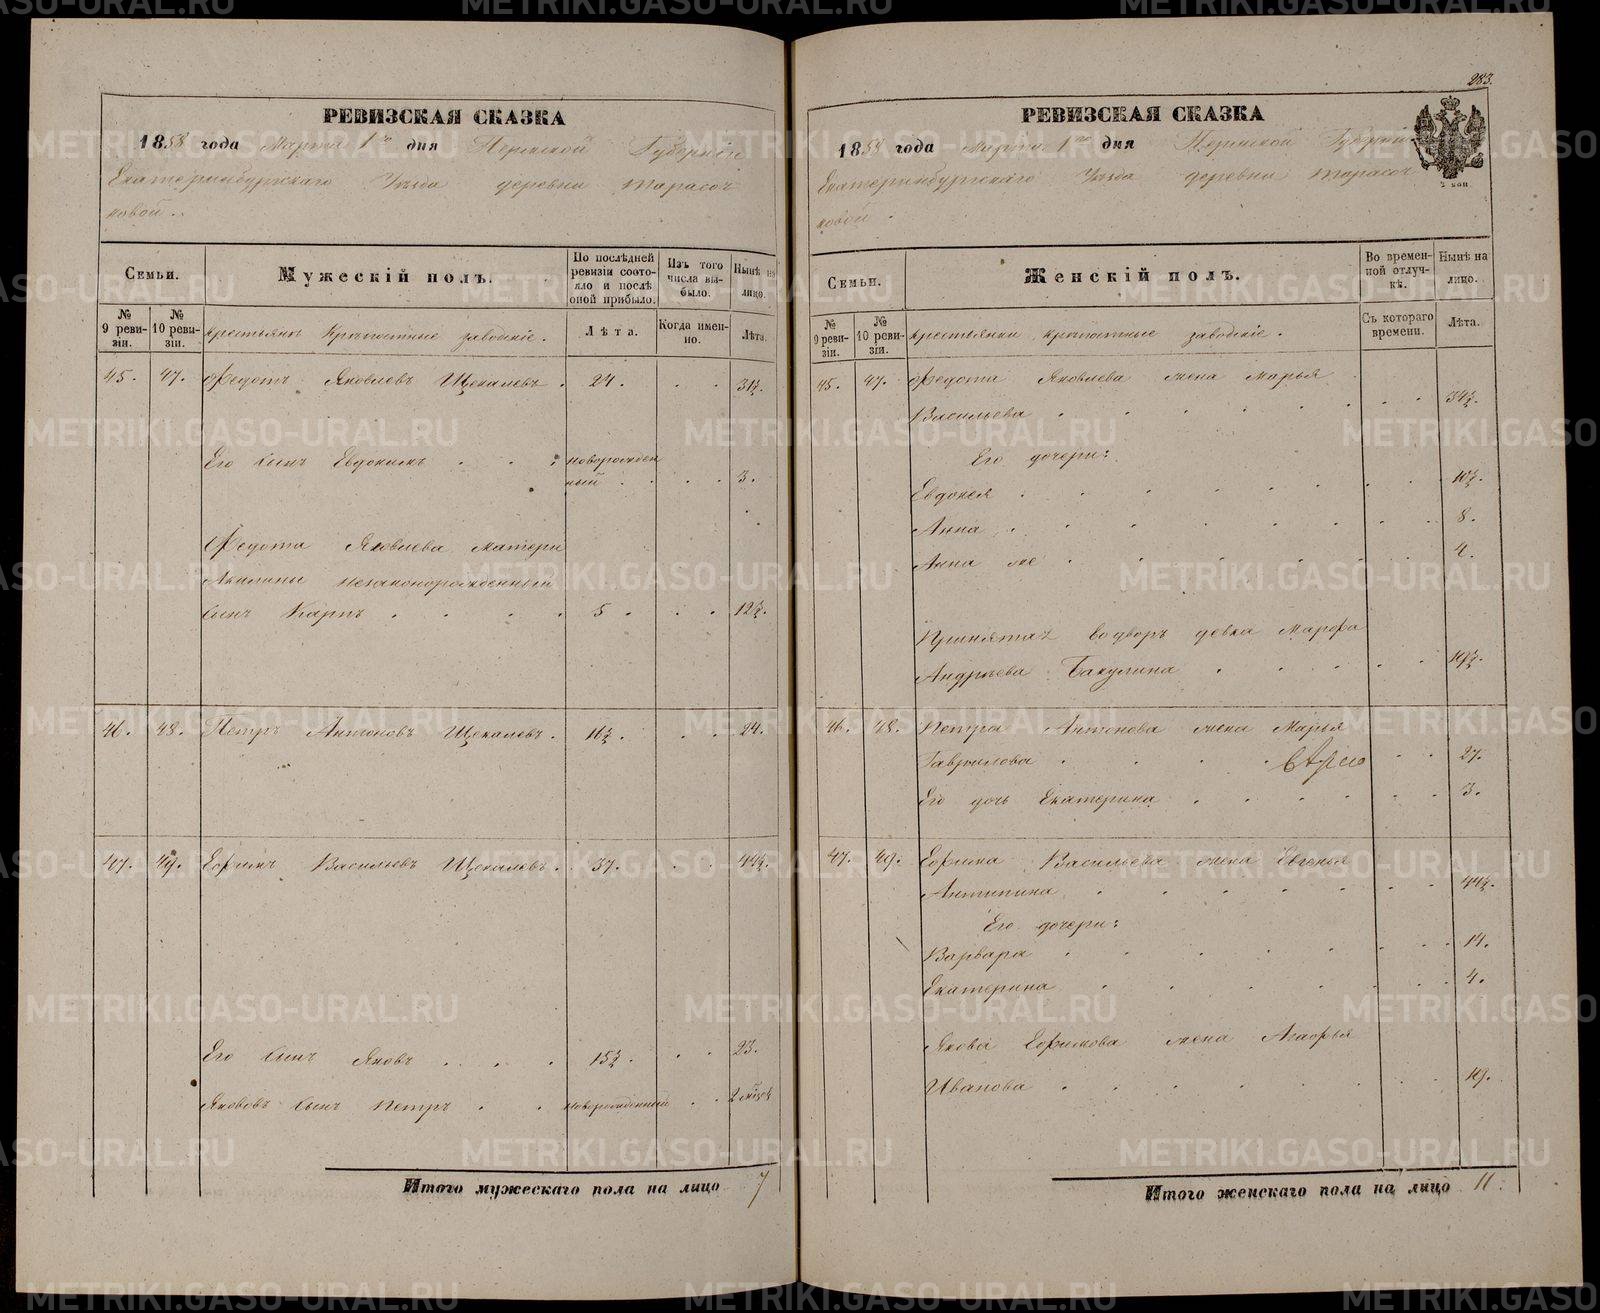 283.
РЕВИЗСКАЯ СКАЗКА
1858 года Марта 1го дня Пермской Губерніи
Екатеринбургскаго Уѣзда деревни Тарасо
ковой.
Семьи.
Мужескій полъ.
По послѣдней ревизіи состояло и послѣ оной прибыло.
Изъ того числа выбыло.
Нынѣ на лицо.
№ 9 ревизіи.
№ 10 ревизіи.
Крестьянъ Крѣпостные заводскіе.
Лѣта.
Когда именно.
Лѣта.
45. 47. Федотъ Яковлевъ Щекалевъ. 24. 31½.
Его сынъ Евдокимъ новорожден
ный 3.
Федота Яковлева матери
Акилины незаконорожденный
сынъ Карпъ 5. 12½.
46. 48. Петръ Антоновъ Щекалевъ. 16½. 24.
47. 49. Ефримъ Васильевъ Щекалевъ. 37. 44½.
Его сынъ Яковъ 15½. 23.
Яковъ сынъ Петръ новорожденный 2 мѣся
Итого мужескаго пола на лицо 7
РЕВИЗСКАЯ СКАЗКА
1858 года Марта 1го дня Пермской Губерніи
Екатеринбургскаго Уѣзда деревни Тарасо
ковой.
2 коп
Семьи.
Женскій полъ.
Во временной отлучкѣ.
Нынѣ на лицо.
№ 9 ревизіи.
№ 10 ревизіи.
Крестьянки крѣпостные заводскіе.
Съ котораго времени.
Лѣта.
45. 47. Федота Яковлева жена Марья
Васильева 34½.
Его дочери:
Евдокея 10½.
Анна 8.
Анна же 4.
Принятая во дворъ девка Марфа
Андрѣева Бакулина 19½.
46. 48. Петра Антонова жена Марья
Гаврилова 27.
Его дочь Екатерина 3.
47. 49. Ефрима Васильева жена Евгенья
Антипина 44½.
Его дочери:
Варвара 14.
Екатерина 4.
Якова Ефимова жена Агафья
Иванова 19.
Итого женскаго пола на лицо 11.
METRIKI.GASO-URAL.RU